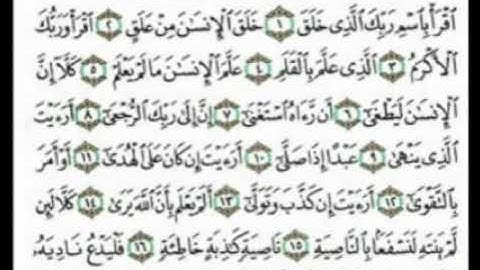 ٱقۡرَأۡ بِٱسۡمِ رَبِّكَ ٱلَّذِي خَلَقَ ١ خَلَقَ ٱلۡإِنسَٰنَ مِنۡ عَلَقٍ ٢ ٱقۡرَأۡ وَرَبُّكَ
ٱلۡأَكۡرَمُ ٣ ٱلَّذِي عَلَّمَ بِٱلۡقَلَمِ ٤ عَلَّمَ ٱلۡإِنسَٰنَ مَا لَمۡ يَعۡلَمۡ ٥ كَلَّآ إِنَّ
ٱلۡإِنسَٰنَ لَيَطۡغَىٰٓ ٦ أَن رَّءَاهُ ٱسۡتَغۡنَىٰٓ ٧ إِنَّ إِلَىٰ رَبِّكَ ٱلرُّجۡعَىٰٓ ٨ أَرَءَيۡتَ
ٱلَّذِي يَنۡهَىٰ ٩ عَبۡدًا إِذَا صَلَّىٰٓ ١٠ أَرَءَيۡتَ إِن كَانَ عَلَى ٱلۡهُدَىٰٓ ١١ أَوۡ أَمَرَ
بِٱلتَّقۡوَىٰٓ ١٢ أَرَءَيۡتَ إِن كَذَّبَ وَتَوَلَّىٰٓ ١٣ أَلَمۡ يَعۡلَم بِأَنَّ ٱللَّهَ يَرَىٰ ١٤ كَلَّا لَئِن
لَّمۡ يَنتَهِ لَنَسۡفَعَۢا بِٱلنَّاصِيَةِ ١٥ نَاصِيَةٖ كَٰذِبَةٍ خَاطِئَةٖ ١٦ فَلۡيَدۡعُ نَادِيَهُۥ